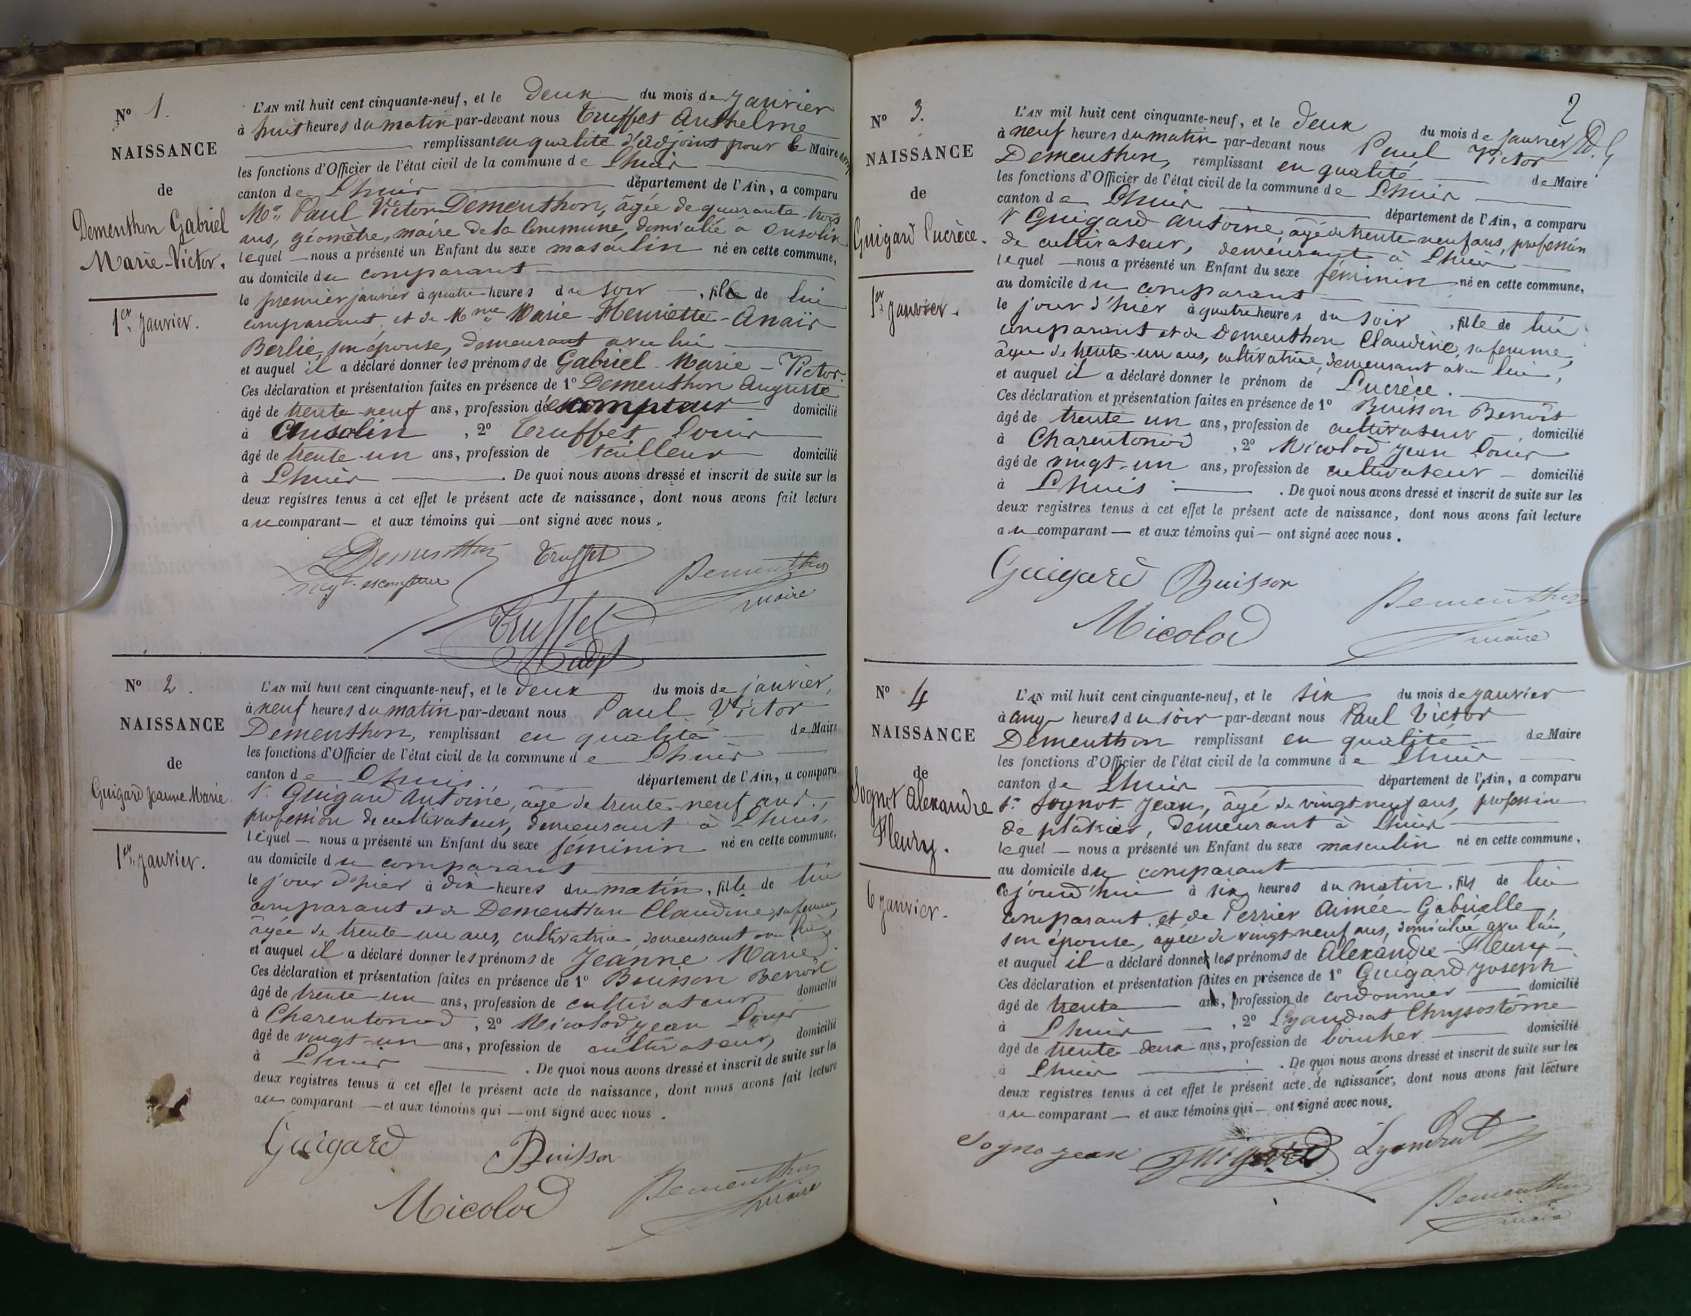 N° 1.
NAISSANCE
de
Dementhon Gabriel
Marie-Victor.
1er janvier.
L'AN mil huit cent cinquante-neuf, et le deux du mois de janvier
à huit heures du matin par-devant nous Truffet Anthelme
remplissant en qualité d'adjoint pour le Maire
les fonctions d'Officier de l'état civil de la commune de Lhuis
canton de Lhuis département de l'Ain, a comparu
Mr. Paul Victor Dementhon, âgé de quarante-trois
ans, géomètre, maire de la Commune, domicilié à Ansolin
lequel nous a présenté un Enfant du sexe masculin né en cette commune,
au domicile du comparant
le premier janvier à quatre heures du soir, fils de lui
comparant et de Mme Marie-Henriette-Anaïs
Berlie, son épouse, demeurant avec lui
et auquel il a déclaré donner les prénoms de Gabriel-Marie-Victor.
Ces déclaration et présentation faites en présence de 1° Dementhon Auguste
âgé de trente-neuf ans, profession de escompteur domicilié
à Ansolin, 2° Truffet Louis
âgé de trente-un ans, profession de tailleur domicilié
à Lhuis. De quoi nous avons dressé et inscrit de suite sur les
deux registres tenus à cet effet le présent acte de naissance, dont nous avons fait lecture
au comparant et aux témoins qui ont signé avec nous.
Dementhon Truffet Dementhon
negt. escompteur maire
Truffet
adjt
N° 2.
NAISSANCE
de
Guigard Jeanne Marie
1er janvier.
L'AN mil huit cent cinquante-neuf, et le deux du mois de janvier,
à neuf heures du matin par-devant nous Paul Victor
Dementhon, remplissant en qualité de Maire
les fonctions d'Officier de l'état civil de la commune de Lhuis
canton de Lhuis département de l'Ain, a comparu
Sr Guigard Antoine, âgé de trente-neuf ans,
profession de cultivateur, demeurant à Lhuis,
lequel nous a présenté un Enfant du sexe féminin né en cette commune,
au domicile du comparant
le jour d'hier à dix heures du matin, fille de lui
comparant et de Dementhon Claudine, sa femme,
âgée de trente-un ans, cultivatrice, demeurant avec lui,
et auquel il a déclaré donner les prénoms de Jeanne Marie
Ces déclaration et présentation faites en présence de 1° Buisson Benoît
âgé de trente-un ans, profession de cultivateur domicilié
à Charentonod, 2° Micolod Jean Louis
âgé de vingt-un ans, profession de cultivateur, domicilié
à Lhuis. De quoi nous avons dressé et inscrit de suite sur les
deux registres tenus à cet effet le présent acte de naissance, dont nous avons fait lecture
au comparant et aux témoins qui ont signé avec nous.
Guigard Buisson
Micolod Dementhon
maire
2
N° 3.
NAISSANCE
de
Guigard Lucrèce.
1er janvier.
L'AN mil huit cent cinquante-neuf, et le deux du mois de janvier
à neuf heures du matin par-devant nous Paul Victor
Dementhon, remplissant en qualité de Maire
les fonctions d'Officier de l'état civil de la commune de Lhuis
canton de Lhuis département de l'Ain, a comparu
Sr Guigard Antoine, âgé de trente-neuf ans, profession
de cultivateur, demeurant à Lhuis
lequel nous a présenté un Enfant du sexe féminin né en cette commune,
au domicile du comparant
le jour d'hier à quatre heures du soir, fille de lui
comparant et de Dementhon Claudine, sa femme,
âgée de trente-un ans, cultivatrice, demeurant avec lui,
et auquel il a déclaré donner le prénom de Lucrèce.
Ces déclaration et présentation faites en présence de 1° Buisson Benoît
âgé de trente un ans, profession de cultivateur, domicilié
à Charentonod, 2° Micolod Jean Louis
âgé de vingt-un ans, profession de cultivateur domicilié
à Lhuis. De quoi nous avons dressé et inscrit de suite sur les
deux registres tenus à cet effet le présent acte de naissance, dont nous avons fait lecture
au comparant et aux témoins qui ont signé avec nous.
Guigard Buisson
Micolod Dementhon
maire
N° 4
NAISSANCE
de
Sognot Alexandre
Fleury.
6 janvier.
L'AN mil huit cent cinquante-neuf, et le six du mois de janvier
à heures du soir par-devant nous Paul Victor
Dementhon remplissant en qualité de Maire
les fonctions d'Officier de l'état civil de la commune de Lhuis
canton de Lhuis département de l'Ain, a comparu
Sr Sognot Jean, âgé de vingt neuf ans, profession
de plâtrier, demeurant à Lhuis
lequel nous a présenté un Enfant du sexe masculin né en cette commune,
au domicile du comparant
cejourd'hui à six heures du matin, fils de lui
comparant et de Perrier Aimée-Gabrielle,
son épouse, âgée de vingt neuf ans, domiciliée avec lui,
et auquel il a déclaré donner les prénoms de Alexandre-Fleury
Ces déclaration et présentation faites en présence de 1° Guigard Joseph
âgé de trente ans, profession de cordonnier domicilié
à Lhuis, 2° Lyandrat Chrysostôme
âgé de trente-deux ans, profession de boucher domicilié
à Lhuis. De quoi nous avons dressé et inscrit de suite sur les
deux registres tenus à cet effet le présent acte de naissance, dont nous avons fait lecture
au comparant et aux témoins qui ont signé avec nous.
Sogno Jean Guigard Lyandrat
Dementhon
maire